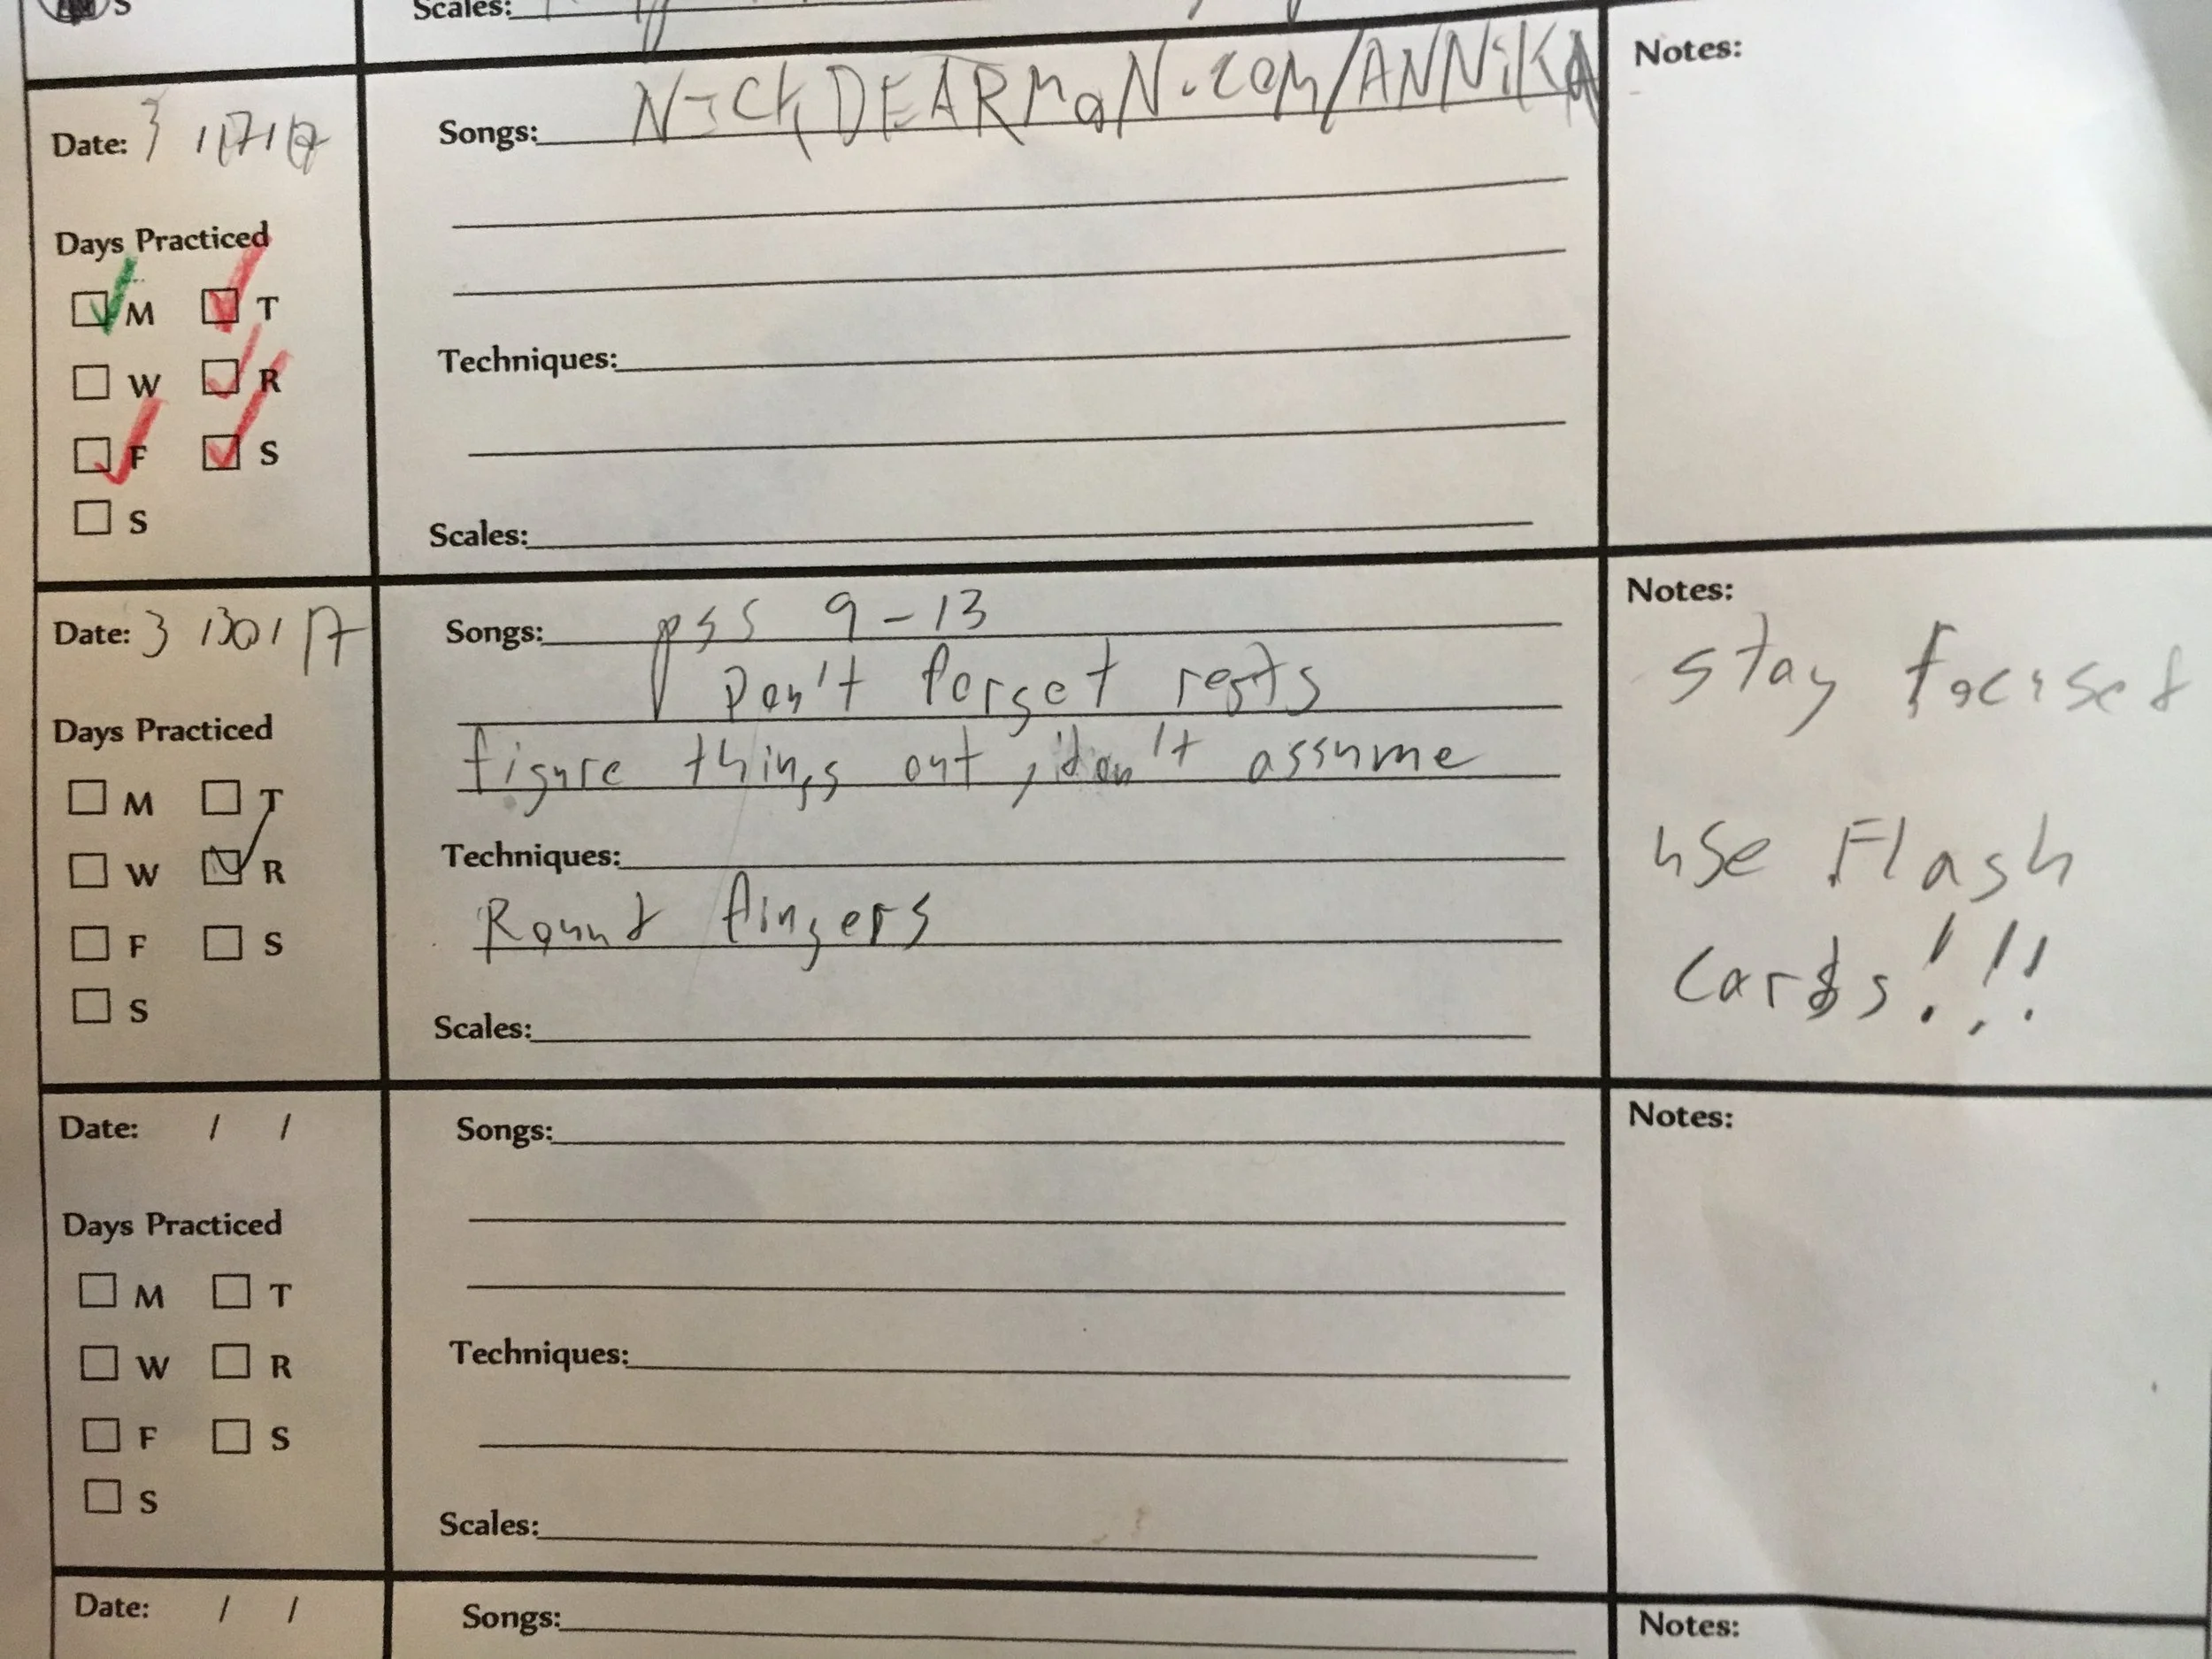 S Scales:
Date: 3 / 17 / 17
Songs: NICKDEARMaN.COM/ANNiKA
Notes:
Days Practiced
M T
W R
F S
S
Techniques:
Scales:
Date: 3 / 30 / 17
Songs: pgs 9-13
Don't forget rests
figure things out, don't assume
Notes:
stay focused
use Flash
Cards!!!
Days Practiced
M T
W R
F S
S
Techniques:
Round fingers
Scales:
Date: / /
Songs:
Notes:
Days Practiced
M T
W R
F S
S
Techniques:
Scales:
Date: / /
Songs:
Notes: